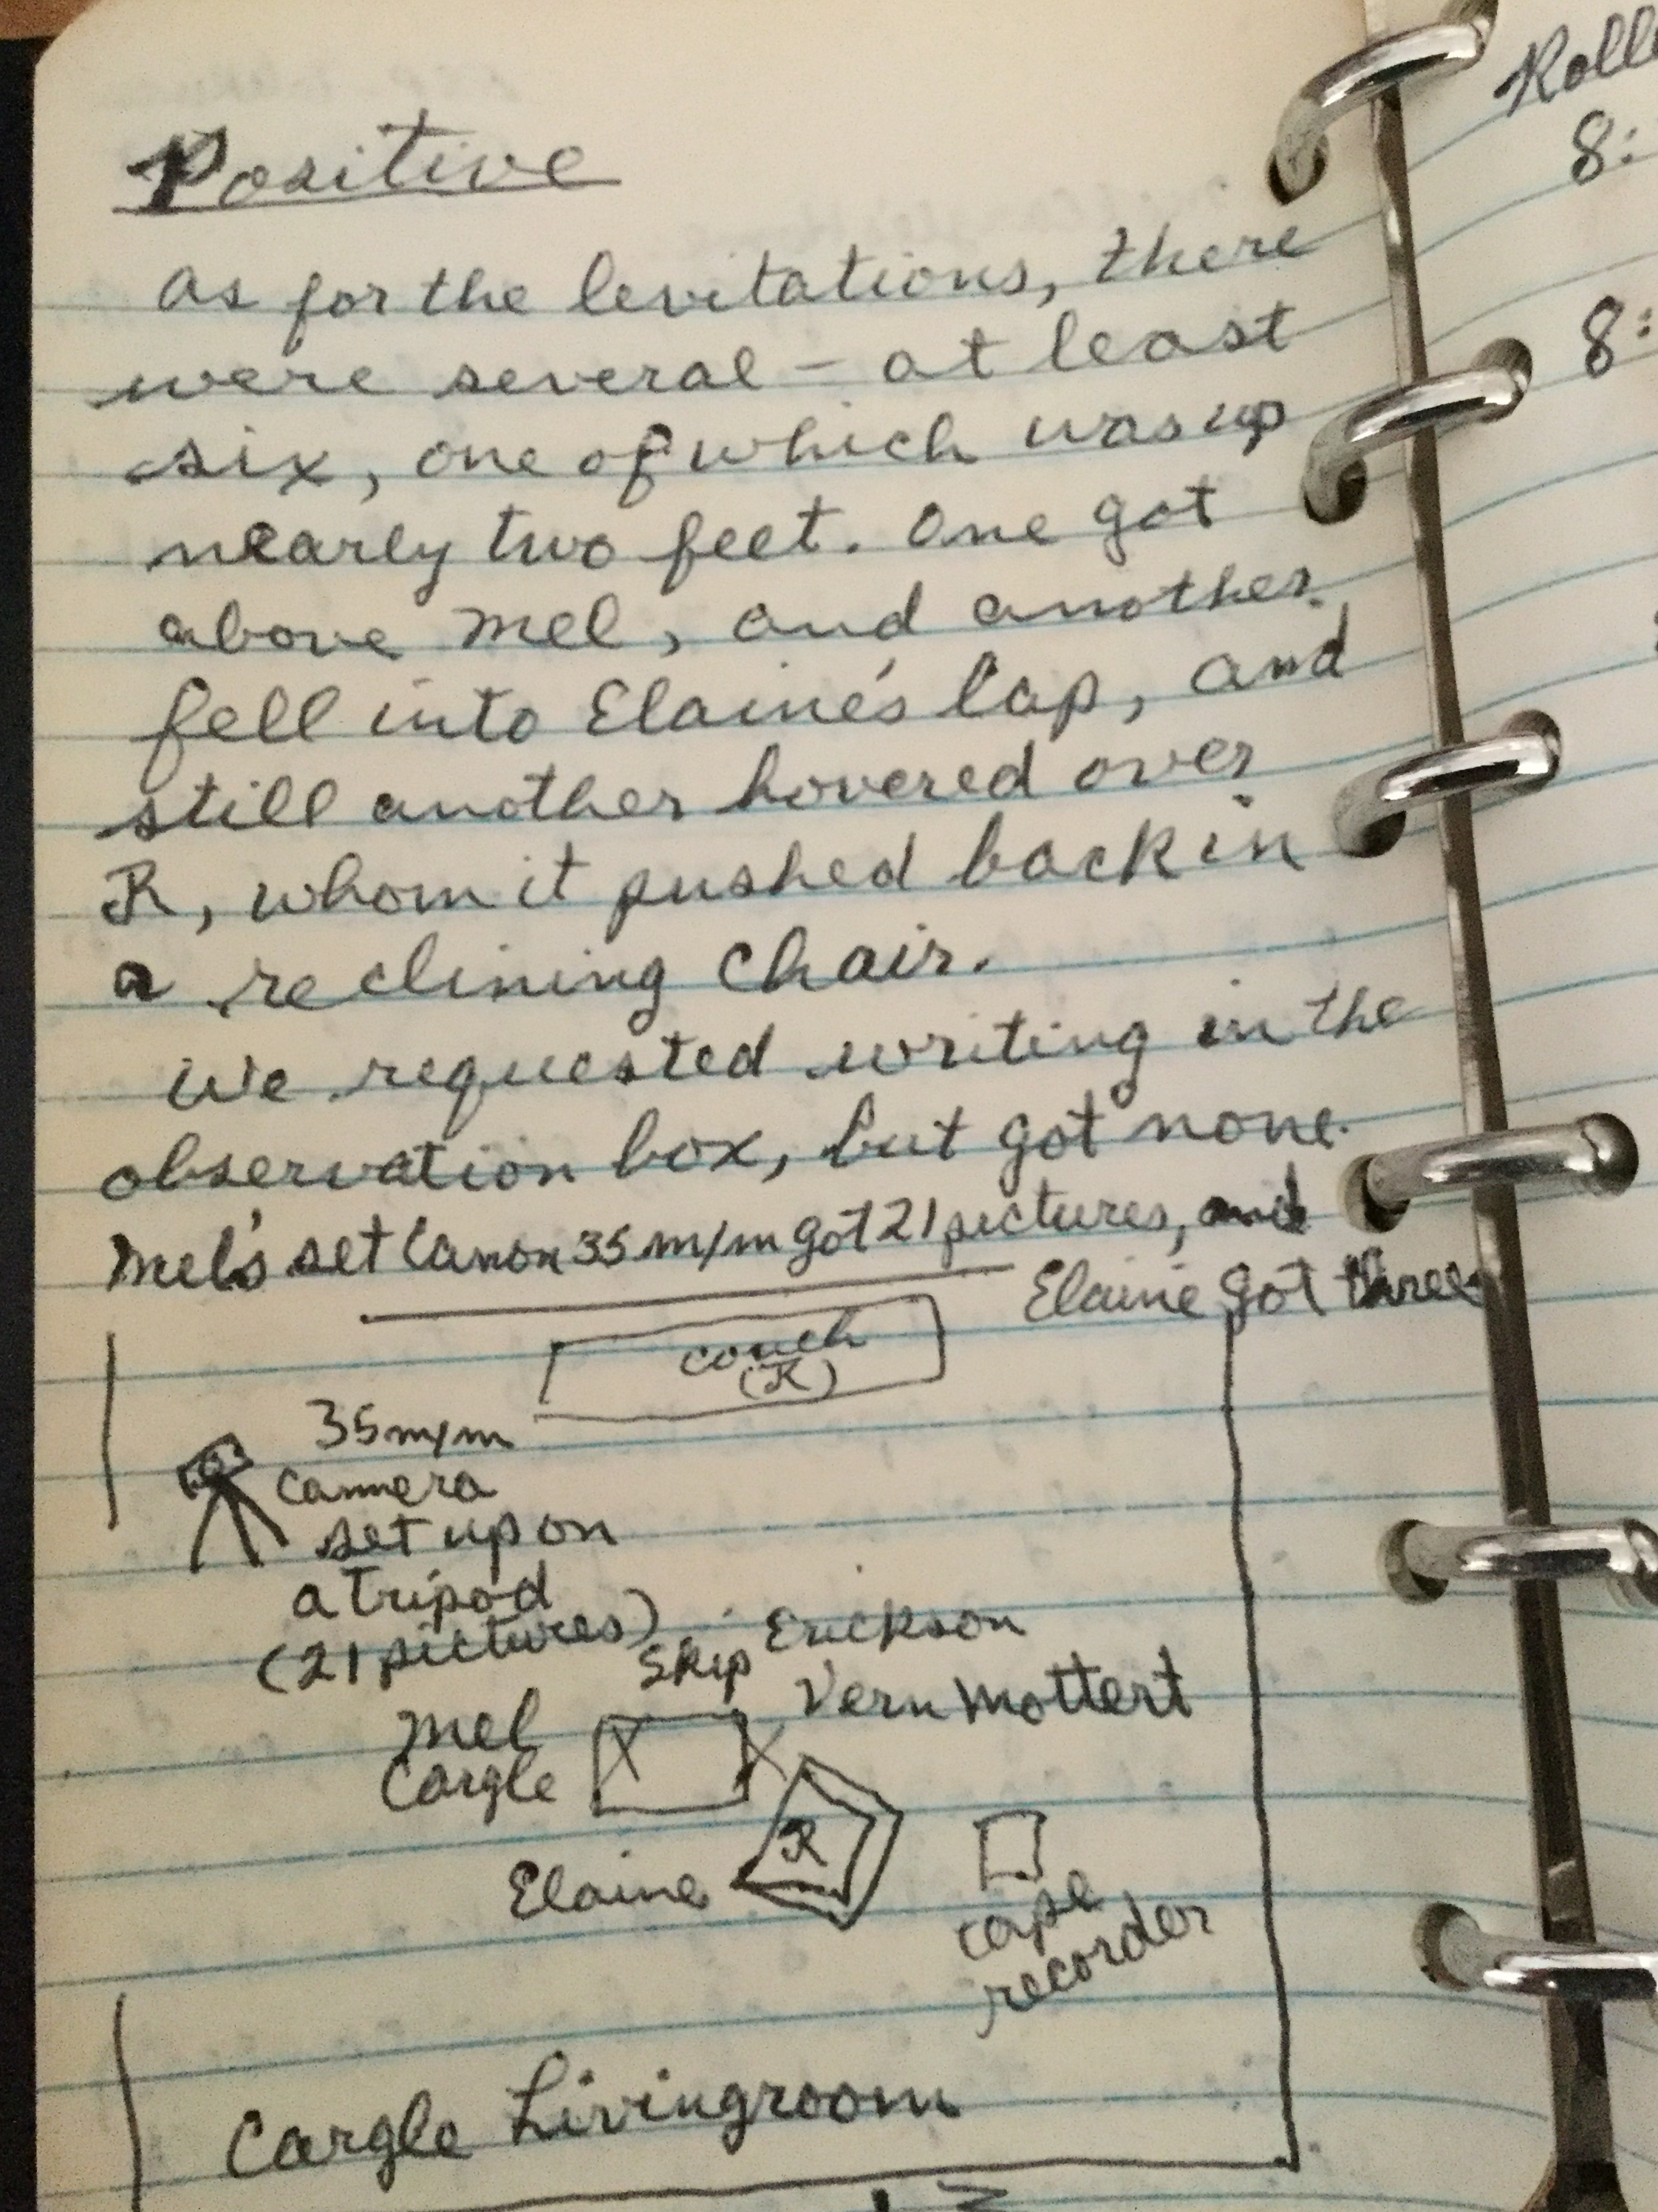 Positive
As for the levitations, there
were several - at least
six, one of which was up
nearly two feet. One got
above Mel, and another
fell into Elaine's lap, and
still another hovered over
R, whom it pushed back in
a reclining chair.
We requested writing in the
observation box, but got none.
Mel's set Canon 35 m/m got 21 pictures, and
Elaine got three
couch
(R)
35 m/m
camera
set up on
a tripod
(21 pictures)
Skip Erickson
Vern Mottert
Mel
Cargle
R
Elaine
tape
recorder
Cargle Livingroom
8:
8: